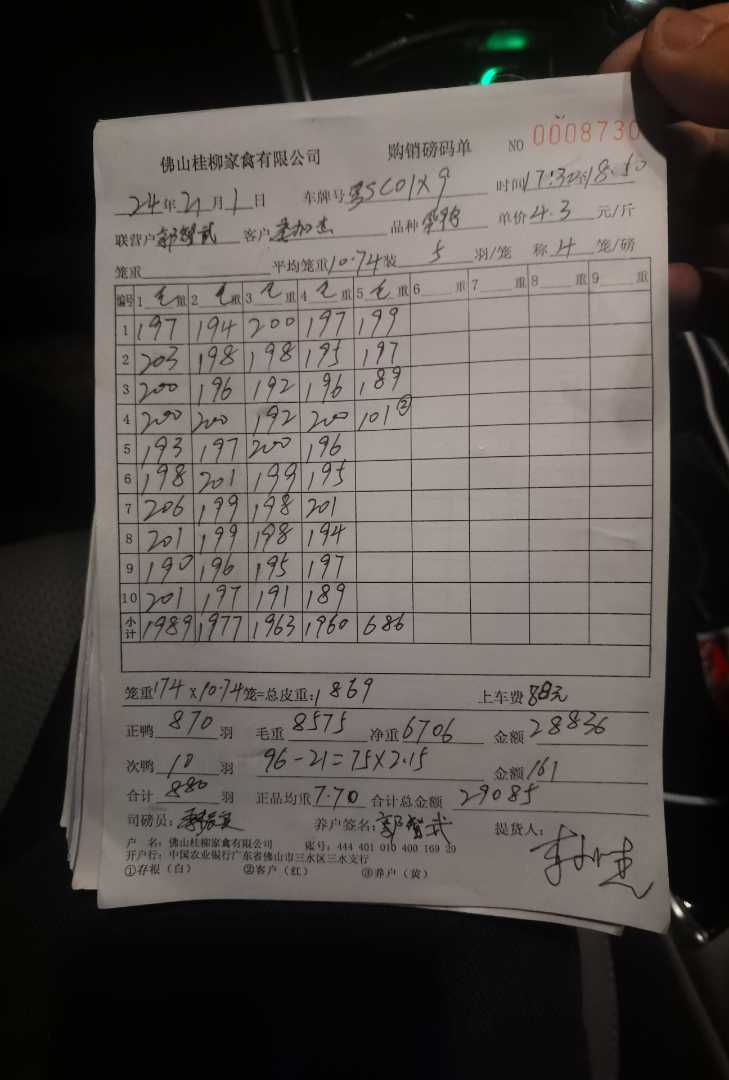 佛山桂柳家禽有限公司 购销磅码单 NO 0008730
24年21月1日 车牌号 粤SC01X9 时间17:32-18:10
联营户 郭贺武 客户 品种 单价4.3元/斤
笼重 平均笼重10.74装 5 羽/笼 称 4 笼/磅
编号 1 毛重 2 毛重 3 毛重 4 毛重 5 毛重 6 重 7 重 8 重 9 重
1 197 194 200 197 199
2 203 198 198 195 197
3 200 196 192 196 189
4 200 200 192 200 101②
5 193 197 200 196
6 198 201 199 195
7 206 199 198 201
8 201 199 198 194
9 190 196 195 197
10 201 197 191 189
小计 1989 1977 1963 1960 686
笼重174×10.74笼=总皮重:1869 上车费88元
正鸭870羽 毛重8575 净重6706 金额28836
次鸭10羽 96-21=75×2.15 金额161
合计880羽 正品均重7.70 合计总金额29085
司磅员: 养户签名:郭贺武 提货人:
户 名:佛山桂柳家禽有限公司 账号:444 401 010 400 169 29
开户行:中国农业银行广东省佛山市三水区三水支行
①存根(白) ②客户(红) ③养户(黄)